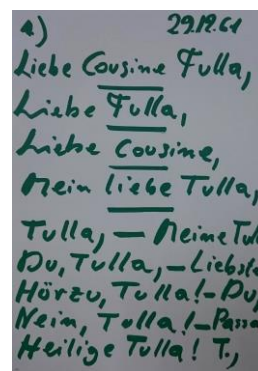 a) 29.12.61
Liebe Cousine Tulla,
Liebe Tulla,
Liebe Cousine,
Mein liebe Tulla,
Tulla, — Meine Tul
Du, Tulla, — Liebste
Hörzu, Tulla! — Du,
Nein, Tulla! — Pass
Heilige Tulla! T.,